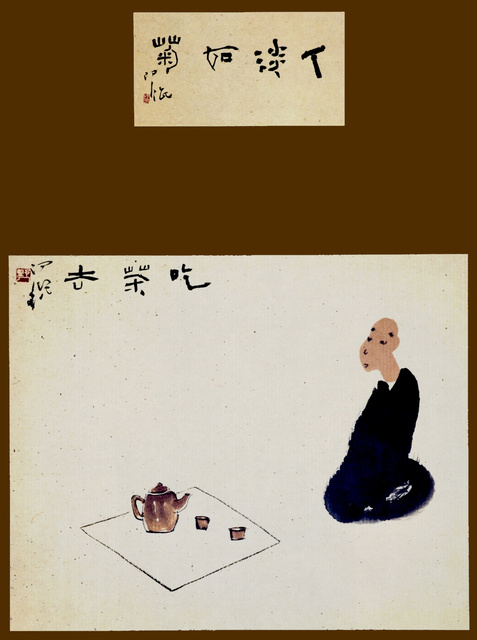 人淡如菊
吃茶去